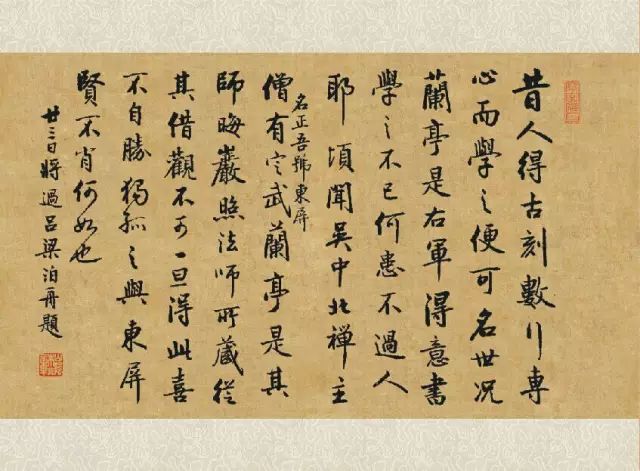 昔人得古刻數行專
心而學之便可名世况
蘭亭是右軍得意書
學之不已何患不過人
耶頃聞吳中北禪主
名正吾號東屏
僧有定武蘭亭是其
師晦巖照法師所藏從
其借觀不可一旦得此喜
不自勝獨孤之與東屏
賢不肖何如也
廿三日將過呂梁泊舟題